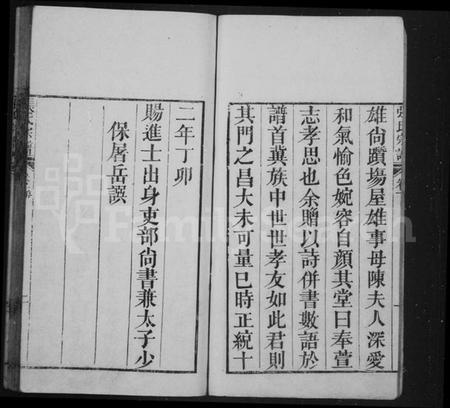 雄尚躓場屋雄事母陳夫人深愛
和氣愉色婉容自顏其堂曰奉萱
志孝思也余贈以詩併書數語於
譜首冀族中世世孝友如此君則
其門之昌大未可量巳時正統十
二年丁卯
賜進士出身吏部尚書兼太子少
保屠岳譔
FamilySearch